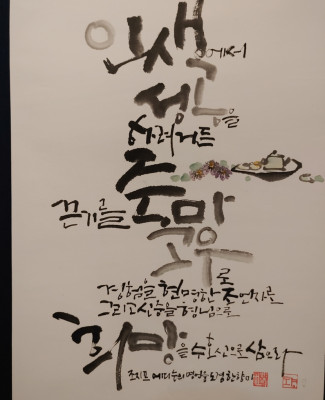 인생에서
성공을
하려거든
끈기를 죽마고우로
경험을 현명한 조언자로
그리고 신중을 형님으로
희망을 수호신으로 삼으라
조지프 에디슨의 명언을 도경 한항미